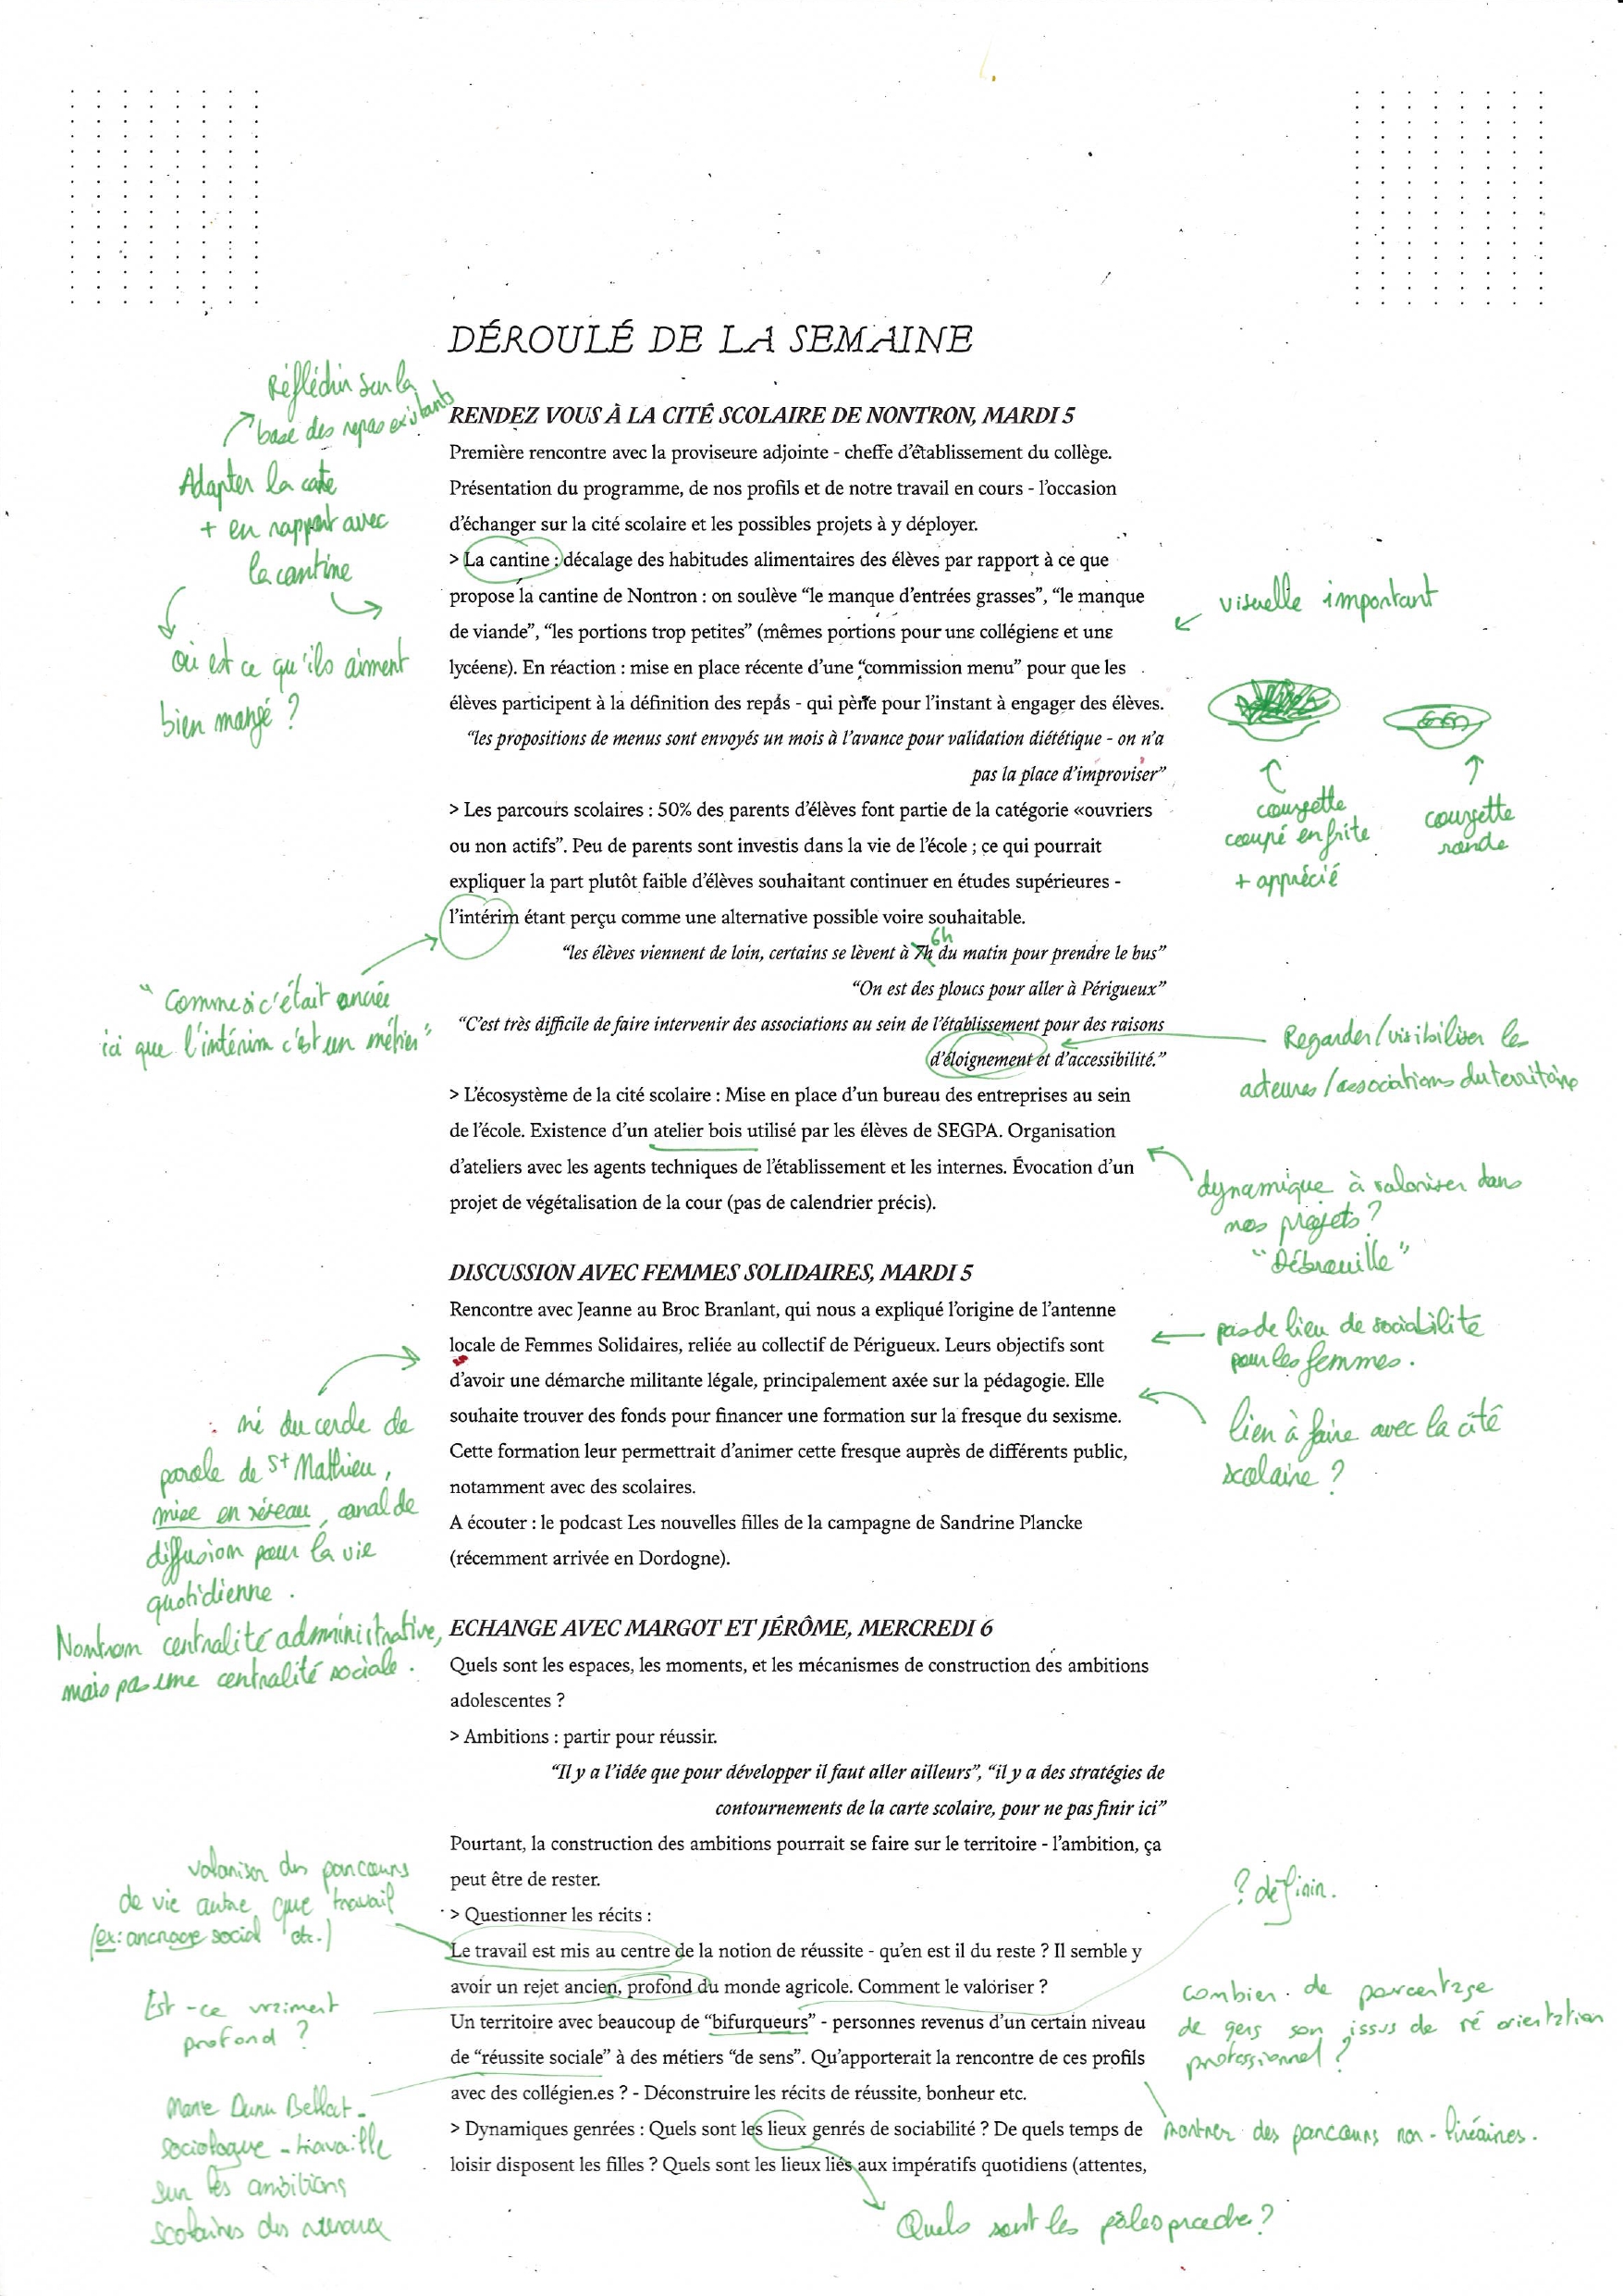 DÉROULÉ DE LA SEMAINE
Réflédir sur la
base des repas existants
Adapter la carte
+ en rapport avec
la cantine
où est ce qu'ils aiment
bien mangé ?
RENDEZ VOUS À LA CITÉ SCOLAIRE DE NONTRON, MARDI 5
Première rencontre avec la proviseure adjointe - cheffe d'établissement du collège.
Présentation du programme, de nos profils et de notre travail en cours - l'occasion
d'échanger sur la cité scolaire et les possibles projets à y déployer.
> La cantine : décalage des habitudes alimentaires des élèves par rapport à ce que
propose la cantine de Nontron : on soulève “le manque d'entrées grasses”, “le manque
de viande”, “les portions trop petites” (mêmes portions pour unɛ collégienɛ et unɛ
lycéenɛ). En réaction : mise en place récente d'une “commission menu” pour que les
élèves participent à la définition des repas - qui peine pour l'instant à engager des élèves.
“les propositions de menus sont envoyés un mois à l'avance pour validation diététique - on n'a
pas la place d'improviser”
visuelle important
courgette
coupé en frite
+ apprécié
courgette
ronde
> Les parcours scolaires : 50% des parents d'élèves font partie de la catégorie «ouvriers
ou non actifs”. Peu de parents sont investis dans la vie de l'école ; ce qui pourrait
expliquer la part plutôt faible d'élèves souhaitant continuer en études supérieures -
l'intérim étant perçu comme une alternative possible voire souhaitable.
6h
“les élèves viennent de loin, certains se lèvent à 7h du matin pour prendre le bus”
“On est des ploucs pour aller à Périgueux”
“C'est très difficile de faire intervenir des associations au sein de l'établissement pour des raisons
d'éloignement et d'accessibilité.”
“ Comme si c'était ancrée
ici que l'intérim c'est un métier”
Regarder/visibiliser les
acteurs/associations du territoire
> L'écosystème de la cité scolaire : Mise en place d'un bureau des entreprises au sein
de l'école. Existence d'un atelier bois utilisé par les élèves de SEGPA. Organisation
d'ateliers avec les agents techniques de l'établissement et les internes. Évocation d'un
projet de végétalisation de la cour (pas de calendrier précis).
dynamique à valoriser dans
nos projets ?
“Débrouille”
DISCUSSION AVEC FEMMES SOLIDAIRES, MARDI 5
Rencontre avec Jeanne au Broc Branlant, qui nous a expliqué l'origine de l'antenne
locale de Femmes Solidaires, reliée au collectif de Périgueux. Leurs objectifs sont
d'avoir une démarche militante légale, principalement axée sur la pédagogie. Elle
souhaite trouver des fonds pour financer une formation sur la fresque du sexisme.
Cette formation leur permettrait d'animer cette fresque auprès de différents public,
notamment avec des scolaires.
A écouter : le podcast Les nouvelles filles de la campagne de Sandrine Plancke
(récemment arrivée en Dordogne).
pas de lieu de sociabilité
pour les femmes.
lien à faire avec la cité
scolaire ?
: né du cercle de
parole de St Mathieu,
mise en réseau, canal de
diffusion pour la vie
quotidienne.
Nontron centralité administrative,
mais pas une centralité sociale.
ECHANGE AVEC MARGOT ET JÉRÔME, MERCREDI 6
Quels sont les espaces, les moments, et les mécanismes de construction des ambitions
adolescentes ?
> Ambitions : partir pour réussir.
“Il y a l'idée que pour développer il faut aller ailleurs”, “il y a des stratégies de
contournements de la carte scolaire, pour ne pas finir ici”
Pourtant, la construction des ambitions pourrait se faire sur le territoire - l'ambition, ça
peut être de rester.
> Questionner les récits :
Le travail est mis au centre de la notion de réussite - qu'en est il du reste ? Il semble y
avoir un rejet ancien, profond du monde agricole. Comment le valoriser ?
Un territoire avec beaucoup de “bifurqueurs” - personnes revenus d'un certain niveau
de “réussite sociale” à des métiers “de sens”. Qu'apporterait la rencontre de ces profils
avec des collégien.es ? - Déconstruire les récits de réussite, bonheur etc.
> Dynamiques genrées : Quels sont les lieux genrés de sociabilité ? De quels temps de
loisir disposent les filles ? Quels sont les lieux liés aux impératifs quotidiens (attentes,
valoriser des parcours
de vie autre que travail
(ex: ancrage social etc.)
Est-ce vraiment
profond ?
Marie Duru Bellat -
sociologue - travaille
sur les ambitions
scolaires des ruraux
? définir.
combien de porcentage
de gens son issus de ré orientation
professionnel ?
montrer des parcours non-linéaires.
Quels sont les pôles proche ?